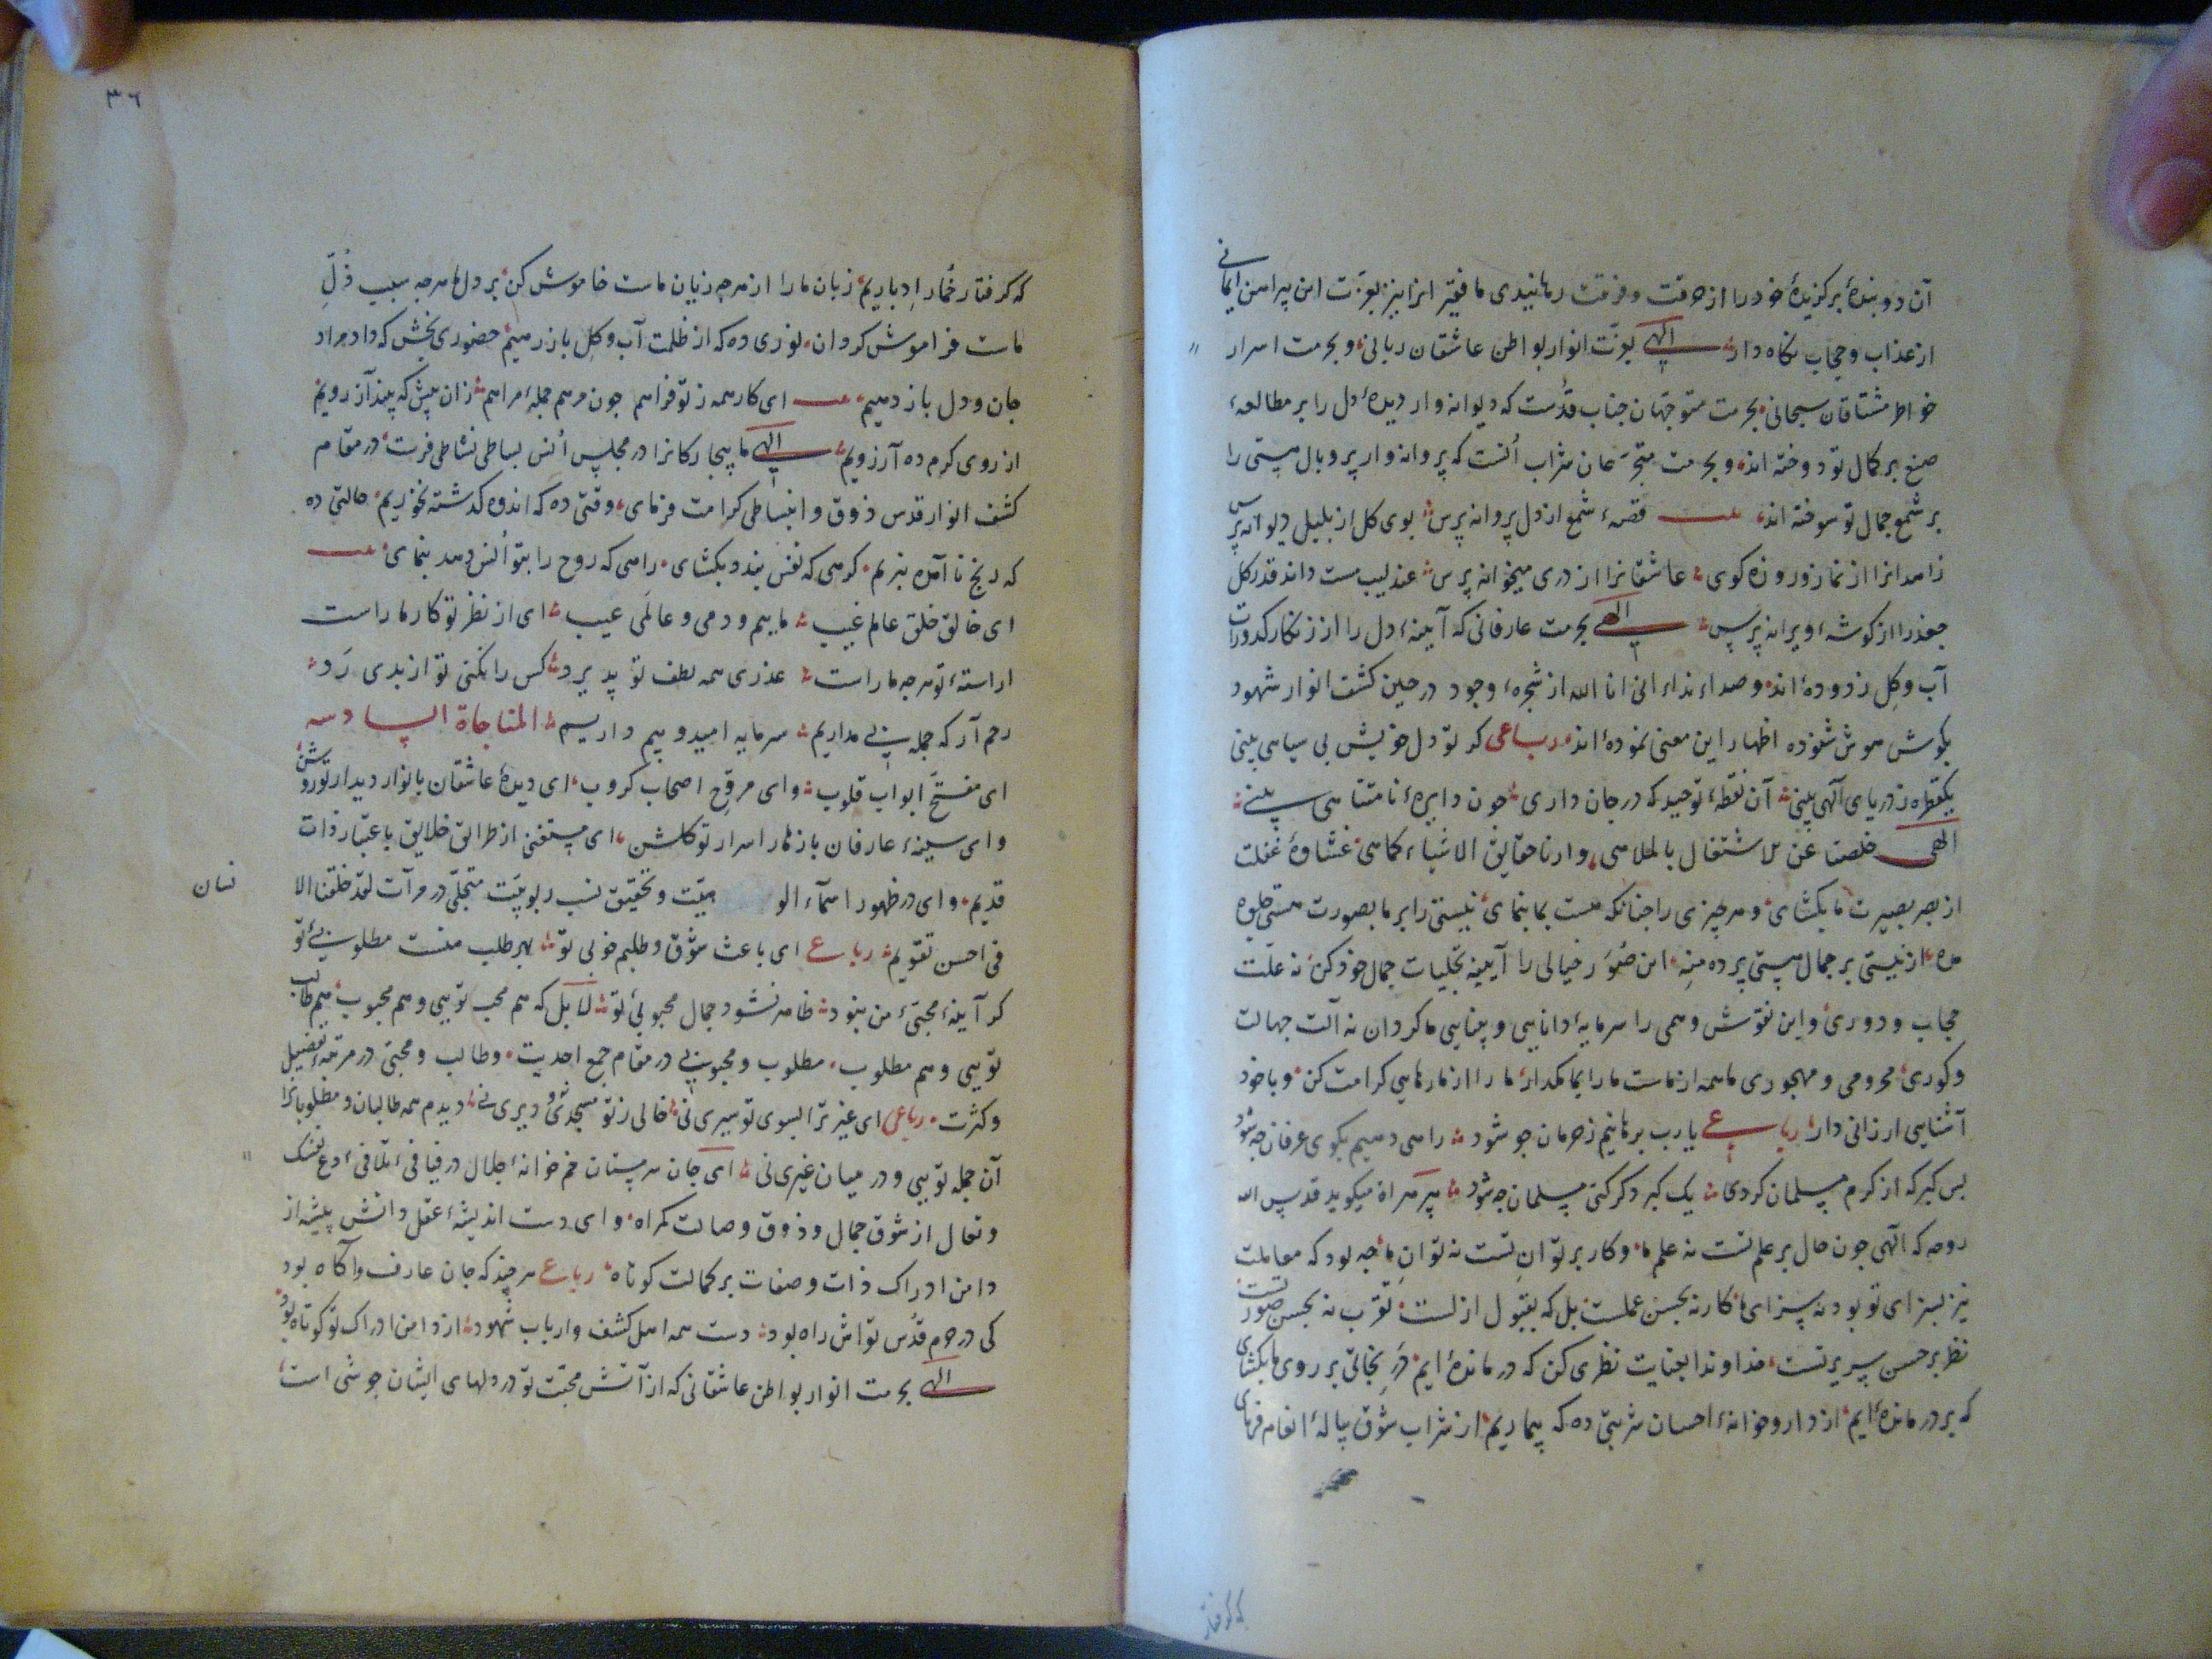 آن دو بندهٔ برکزیدهٔ خود را از حرقت و فرقت رهانیدی ما فقیرانرا نیز بعزت این پیراهن ایمانی
از عذاب و حجاب نکاه دار الهی بعزت انوار بواطن عاشقان ربانی و بحرمت اسرار
خواطر مشتاقان سبحانی بحرمت متوجهان جناب قدست که دیوانه وار دیدهٔ دل را بر مطالعهٔ
صنع بر کمال تو دوخته اند و بحرمت متجرعان شراب انست که پروانه وار پر و بال هستی را
بر شمع جمال تو سوخته اند قصهٔ شمع از دل پروانه پرس بوی کل از بلبل دیوانه پرس
زاهدانرا از نماز و روزه کوی عاشقانرا از در میخانه پرس عندلیب مست داند قدر کل
جغد را از کوشهٔ ویرانه پرس الهی بحرمت عارفانی که آیینهٔ دل را از زنکار کدورات
آب و کل زدوده اند و صداء نداء انی انا الله از شجرهٔ وجود در حین کشف انوار شهود
بکوش هوش شنوده اظهار این معنی نموده اند رباعی کر تو دل خویش بی سیاهی بینی
یکقطره ز دریای الهی بینی آن نقطهٔ توحید که در جان داری چون دایرهٔ نامتناهی بینی
الهی خلصنا عن الاشتغال بالملاهی و ارنا حقایق الاشیاء کماهی غشاوهٔ غفلت
از بصر بصیرت ما بکشای و هر چیزی را چنانکه هست بما بنمای نیستی را بر ما بصورت هستی جلوه
مده از نیستی بر جمال هستی پرده منه این صور خیالی را آیینهٔ تجلیات جمال خود کن نه علت
حجاب و دوری و این نقوش وهمی را سرمایهٔ دانایی و بینایی ما کردان نه آلت جهالت
و کوری محرومی و مهجوری ما همه از ماست ما را بما مکذار ما را از ما رهایی کرامت کن و با خود
آشنایی ارزانی دار رباعی یارب برهانیم ز حرمان چو شود راهی دهیم بکوی عرفان چه شود
بس کبر که از کرم مسلمان کردی یک کبر دکر کنی مسلمان چه شود پیر هراة میکوید قدس الله
روحه که الهی چون حال بر علم تست نه علم ما و کار بر توان تست نه توان ما چه بود که معاملت
نیز بسزای تو بود نه بسزای ما کار نه بحسن عملست بل که بقبول ازلست تقرب نه بحسن صورتست
نظر بر حسن سریرتست خداوندا بعنایت نظری کن که درمانده ایم در نجاتی بر روی ما بکشای
که بر در مانده ایم از داروخانهٔ احسان شربتی ده که بیماریم از شراب شوق پیالهٔ انعام فرمای
که کرفتار
٣٦
که کرفتار خمار ادباریم زبان ما را از هر چه زیان ماست خاموش کن بر دل ما هر چه سبب ذل
ماست فراموش کردان نوری ده که از ظلمت آب و کل باز رهیم حضوری بخش که داد مراد
جان و دل باز دهیم ای کار همه ز تو فراهم چون مرهم جملهٔ مراهم زان پیش که بیند آز رویم
از روی کرم ده آرزویم الهی ما بیچارکانرا در مجلس انس بساطی نشاطی فرست در مقام
کشف انوار قدس ذوق و انبساطی کرامت فرمای وقتی ده که اندوه کذشته نخوریم حالتی ده
که رنج نا آمده نبریم کرهی که نفس بندد بکشای راهی که روح را بتو انس دهد بنمای
ای خالق خلق عالم غیب ماییم و دمی و عالمی عیب ای از نظر تو کار ما راست
اراستهٔ تو هر چه ما راست عذری همه لطف تو پذیرد کس را نکنی تو از بدی رد
رحم آر که جمله بی مداریم سرمایه امید و بیم داریم المناجاة السادسه
ای مفتح ابواب قلوب و ای مروح اصحاب کروب ای دیدهٔ عاشقان بانوار دیدار تو روشن
و ای سینهٔ عارفان بازهار اسرار تو کلشن ای مستغنی از طرایق خلایق باعتبار ذات
قدیم و ای در ظهور اسماء الو هیت و تحقیق نسب ربوبیت متجلی در مرآت لقد خلقنا الا
نسان
فی احسن تقویم رباع ای باعث شوق و طلبم خوبی تو بهر طلب منست مطلوبی تو
کر آینهٔ محبی من نبود ظاهر نشود جمال محبوبی تو لا بل که هم محب تویی و هم محبوب هم طالب
تویی و هم مطلوب مطلوب و محبوبی در مقام جمع احدیت و طالب و محبی در مرتبهٔ تفصیل
و کثرت رباعی ای غیر ترا بسوی تو سیری نی خالی ز تو مسجدی و دیری نی دیدم همه طالبان و مطلوبانرا
آن جمله تویی و در میان غیری نی ای جان سرمستان خم خوانهٔ جلال در فیافی
و تعال از شوق جمال و ذوق وصالت کمراه و ای دست اندیشهٔ عقل دانش پیشه از
دامن ادراک ذات و صفات بر کمالت کوتاه رباع هر چند که جان عارف و آکاه بود
کی در حرم قدس تواش راه بود دست همه اهل کشف و ارباب شهود از دامن ادراک تو کوتاه بود
الهی بحرمت انوار بواطن عاشقانی که از آتش محبت تو در دلهای ایشان جوشی است